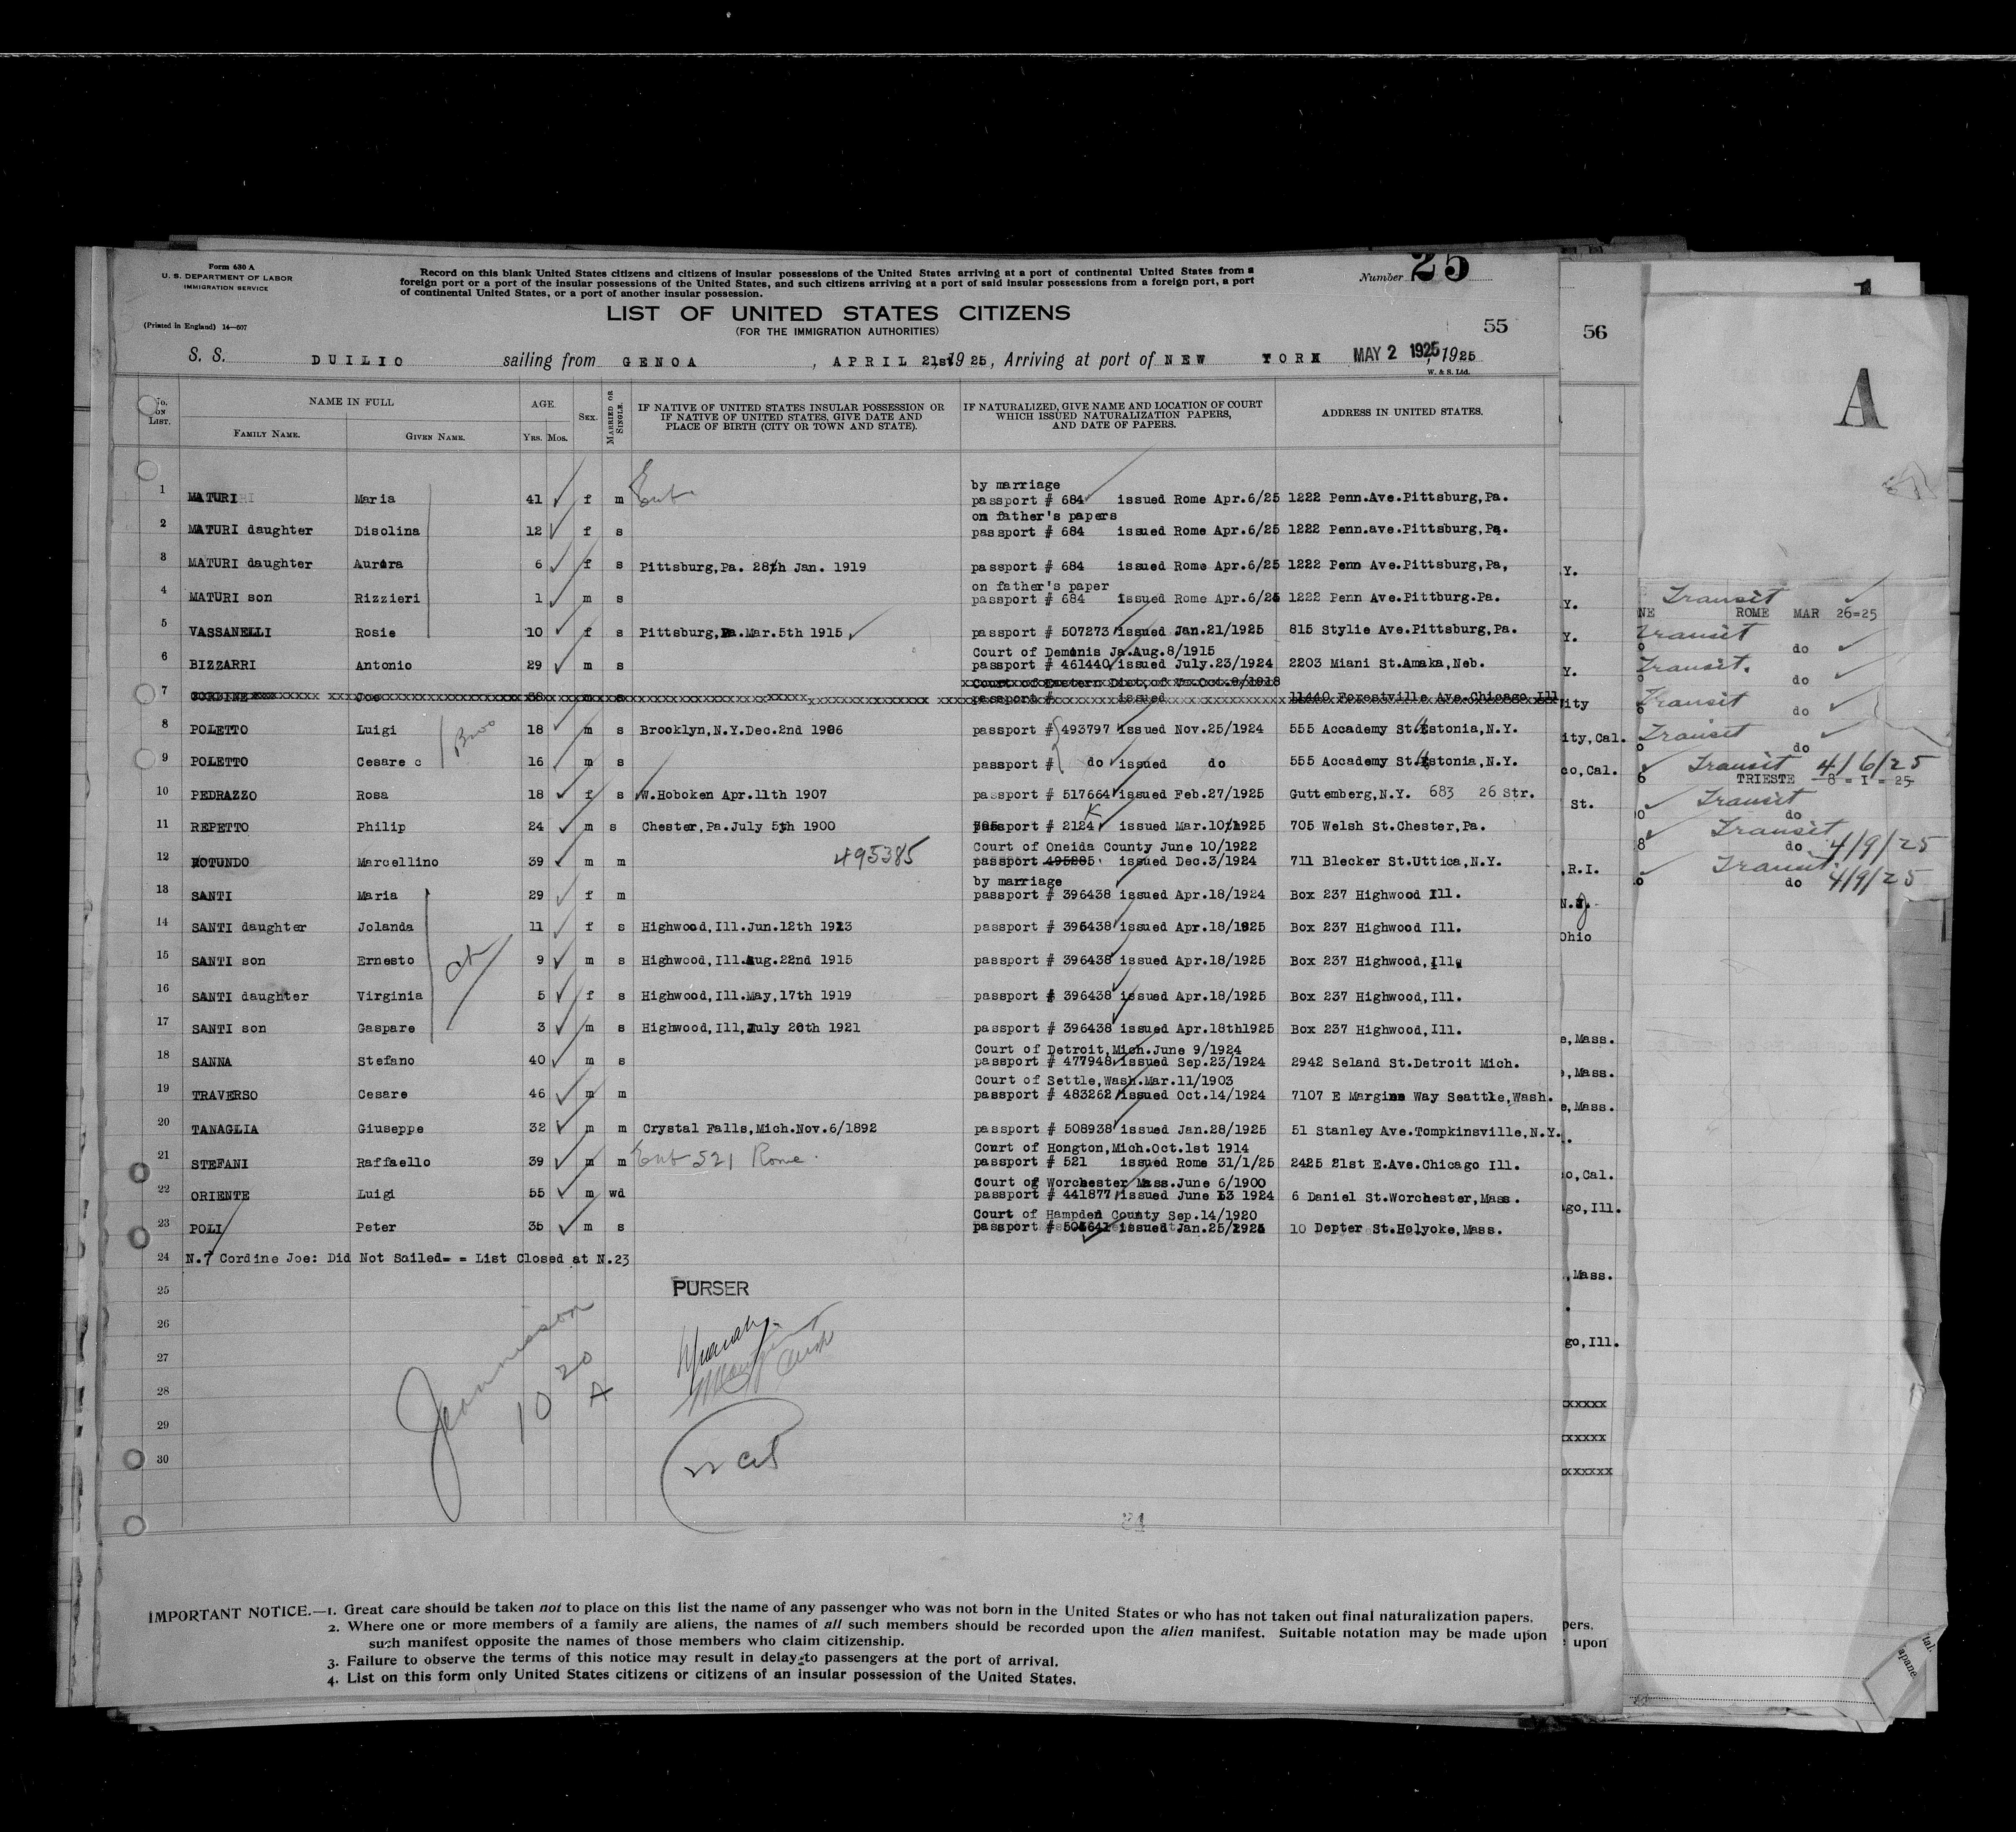 Form 630 A
U. S. DEPARTMENT OF LABOR
IMMIGRATION SERVICE
(Printed in England) 14—607
Record on this blank United States citizens and citizens of insular possessions of the United States arriving at a port of continental United States from a
foreign port or a port of the insular possessions of the United States, and such citizens arriving at a port of said insular possessions from a foreign port, a port
of continental United States, or a port of another insular possession.
Number 25
LIST OF UNITED STATES CITIZENS
(FOR THE IMMIGRATION AUTHORITIES)
55
56
S. S. DUILIO sailing from GENOA, APRIL 21st 1925, Arriving at port of NEW YORK MAY 2 1925, 1925
W. & S. Ltd.
A
No. ON LIST. NAME IN FULL FAMILY NAME. GIVEN NAME. AGE. YRS. MOS. SEX. MARRIED OR SINGLE. IF NATIVE OF UNITED STATES INSULAR POSSESSION OR IF NATIVE OF UNITED STATES, GIVE DATE AND PLACE OF BIRTH (CITY OR TOWN AND STATE). IF NATURALIZED, GIVE NAME AND LOCATION OF COURT WHICH ISSUED NATURALIZATION PAPERS, AND DATE OF PAPERS. ADDRESS IN UNITED STATES.
by marriage
1 MATURI Maria 41 f m passport # 684 issued Rome Apr.6/25 1222 Penn.Ave.Pittsburg,Pa.
on father's papers
2 MATURI daughter Disolina 12 f s passport # 684 issued Rome Apr.6/25 1222 Penn.ave.Pittsburg,Pa.
3 MATURI daughter Aurora 6 f s Pittsburg,Pa. 28th Jan. 1919 passport # 684 issued Rome Apr.6/25 1222 Penn Ave.Pittsburg,Pa,
on father's paper
4 MATURI son Rizzieri 1 m s passport # 684 issued Rome Apr.6/25 1222 Penn Ave.Pittburg.Pa.
5 VASSANELLI Rosie 10 f s Pittsburg,Pa.Mar.5th 1915 passport # 507273 issued Jan.21/1925 815 Stylie Ave.Pittsburg,Pa.
Court of Demonis Ja.Aug.8/1915
6 BIZZARRI Antonio 29 m s passport # 461440 issued July.23/1924 2203 Miani St.Amaka,Neb.
Court of Eastern Dist, of Oct.9/1918
7 CORDINE Joe 38 m s passport # issued 11440 Forestville Ave.Chicago Ill
8 POLETTO Luigi 18 m s Brooklyn,N.Y.Dec.2nd 1906 passport # 493797 issued Nov.25/1924 555 Accademy St.Astonia,N.Y.
9 POLETTO Cesare c 16 m s passport # do issued do 555 Accademy St.Astonia,N.Y.
10 PEDRAZZO Rosa 18 f s W.Hoboken Apr.11th 1907 passport # 517664 issued Feb.27/1925 Guttemberg,N.Y. 683 26 Str.
11 REPETTO Philip 24 m s Chester,Pa.July 5th 1900 passport # 2124 issued Mar.10th1925 705 Welsh St.Chester,Pa.
Court of Oneida County June 10/1922
12 ROTUNDO Marcellino 39 m m 495385 passport 495285 issued Dec.3/1924 711 Blecker St.Uttica,N.Y.
by marriage
13 SANTI Maria 29 f m passport # 396438 issued Apr.18/1924 Box 237 Highwood Ill.
14 SANTI daughter Jolanda 11 f s Highwood,Ill.Jun.12th 1913 passport # 396438 issued Apr.18/1925 Box 237 Highwood Ill.
15 SANTI son Ernesto 9 m s Highwood,Ill.Aug.22nd 1915 passport # 396438 issued Apr.18/1925 Box 237 Highwood,Ill.
16 SANTI daughter Virginia 5 f s Highwood,Ill.May,17th 1919 passport # 396438 issued Apr.18/1925 Box 237 Highwood,Ill.
17 SANTI son Gaspare 3 m s Highwood,Ill,July 20th 1921 passport # 396438 issued Apr.18th1925 Box 237 Highwood,Ill.
Court of Detroit,Mich.June 9/1924
18 SANNA Stefano 40 m s passport # 477948 issued Sep.23/1924 2942 Seland St.Detroit Mich.
Court of Settle,Wash.Mar.11/1903
19 TRAVERSO Cesare 46 m m passport # 483262 issued Oct.14/1924 7107 E Margine Way Seattle,Wash.
20 TANAGLIA Giuseppe 32 m m Crystal Falls,Mich.Nov.6/1892 passport # 508938 issued Jan.28/1925 51 Stanley Ave.Tompkinsville,N.Y.
Court of Hongton,Mich.Oct.1st 1914
21 STEFANI Raffaello 39 m m 521 Rome passport # 521 issued Rome 31/1/25 2425 21st E.Ave.Chicago Ill.
Court of Worchester Mass.June 6/1900
22 ORIENTE Luigi 55 m wd passport # 441877 issued June 13 1924 6 Daniel St.Worchester,Mass.
Court of Hampden County Sep.14/1920
23 POLI Peter 35 m s passport # issued Jan.25/1925 10 Depter St.Holyoke,Mass.
24 N.7 Cordine Joe: Did Not Sailed= = List Closed at N.23
25
PURSER
26
27
28
29
30
Jeannisson
10 20 A
IMPORTANT NOTICE.—1. Great care should be taken not to place on this list the name of any passenger who was not born in the United States or who has not taken out final naturalization papers.
2. Where one or more members of a family are aliens, the names of all such members should be recorded upon the alien manifest. Suitable notation may be made upon
such manifest opposite the names of those members who claim citizenship.
3. Failure to observe the terms of this notice may result in delay to passengers at the port of arrival.
4. List on this form only United States citizens or citizens of an insular possession of the United States.
Y.
Y.
Y.
Y.
ity
ity,Cal.
co,Cal.
St.
,R.I.
N.J.
Ohio
e,Mass.
,Mass.
e,Mass.
o,Cal.
go,Ill.
,Mass.
go,Ill.
xxxxx
xxxxx
xxxxxx
pers.
upon
Transit
NE ROME MAR 26=25
Transit
do
Transit.
do
Transit
do
Transit
do
Transit 4/6/25
TRIESTE 8 = I = 25
Transit
do
Transit
do 4/9/25
Transit
do 4/9/25